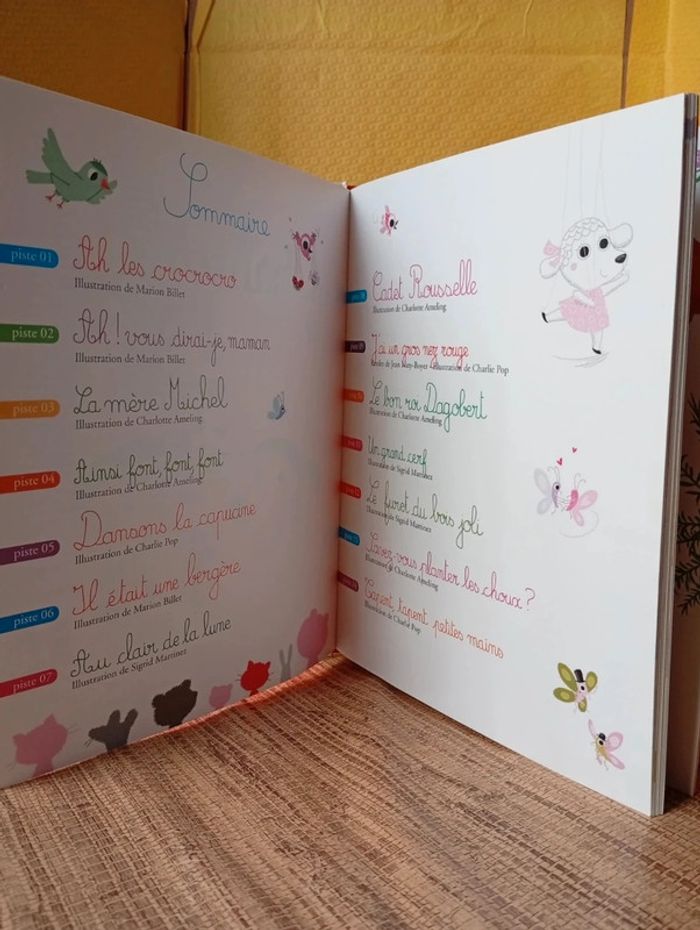 Sommaire
piste 01
Ah les crocrocro
Illustration de Marion Billet
piste 02
Ah ! vous dirai-je, maman
Illustration de Marion Billet
piste 03
La mère Michel
Illustration de Charlotte Ameling
piste 04
Ainsi font, font, font
Illustration de Charlotte Ameling
piste 05
Dansons la capucine
Illustration de Charlie Pop
piste 06
Il était une bergère
Illustration de Marion Billet
piste 07
Au clair de la lune
Illustration de Sigrid Martinez
Cadet Rousselle
Illustration de Charlotte Ameling
J'ai un gros nez rouge
Illustration de Charlie Pop
Le bon roi Dagobert
Illustration de Charlotte Ameling
Un grand cerf
Illustration de Sigrid Martinez
Le furet du bois joli
Illustration de Sigrid Martinez
Savez-vous planter les choux ?
Illustration de Charlotte Ameling
Tapent, tapent petites mains
Illustration de Charlie Pop